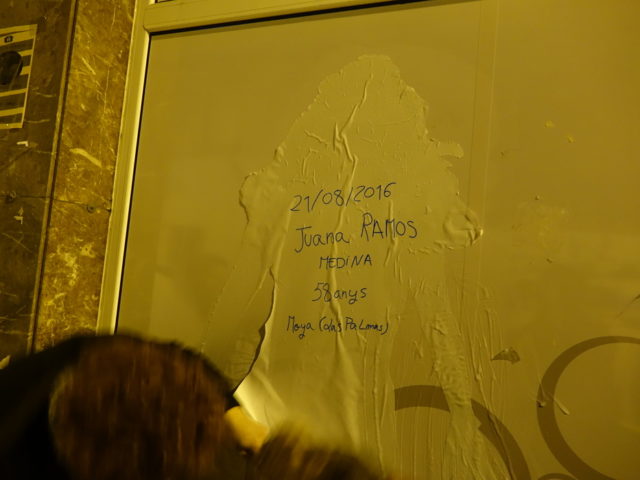 21/08/2016
Juana RAMOS
MEDINA
58 anys
Moya (Las Palmas)